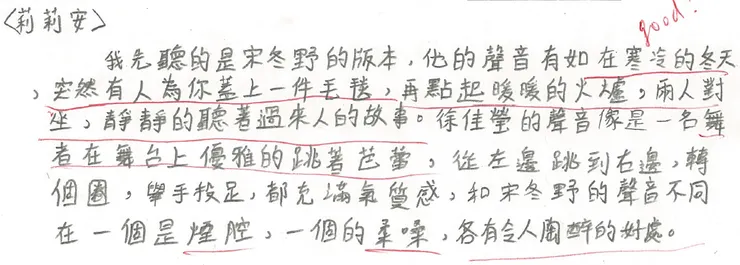 〈莉莉安〉
good!
我先聽的是宋冬野的版本,他的聲音有如在寒冷的冬天
,突然有人為你蓋上一件毛毯,再點起暖暖的火爐,兩人對
坐,靜靜的聽著過來人的故事。徐佳瑩的聲音像是一名舞
者在舞台上優雅的跳著芭蕾,從左邊跳到右邊,轉
個圈,舉手投足,都充滿氣質感,和宋冬野的聲音不同
在一個是煙腔,一個的柔嗓,各有令人陶醉的好處。